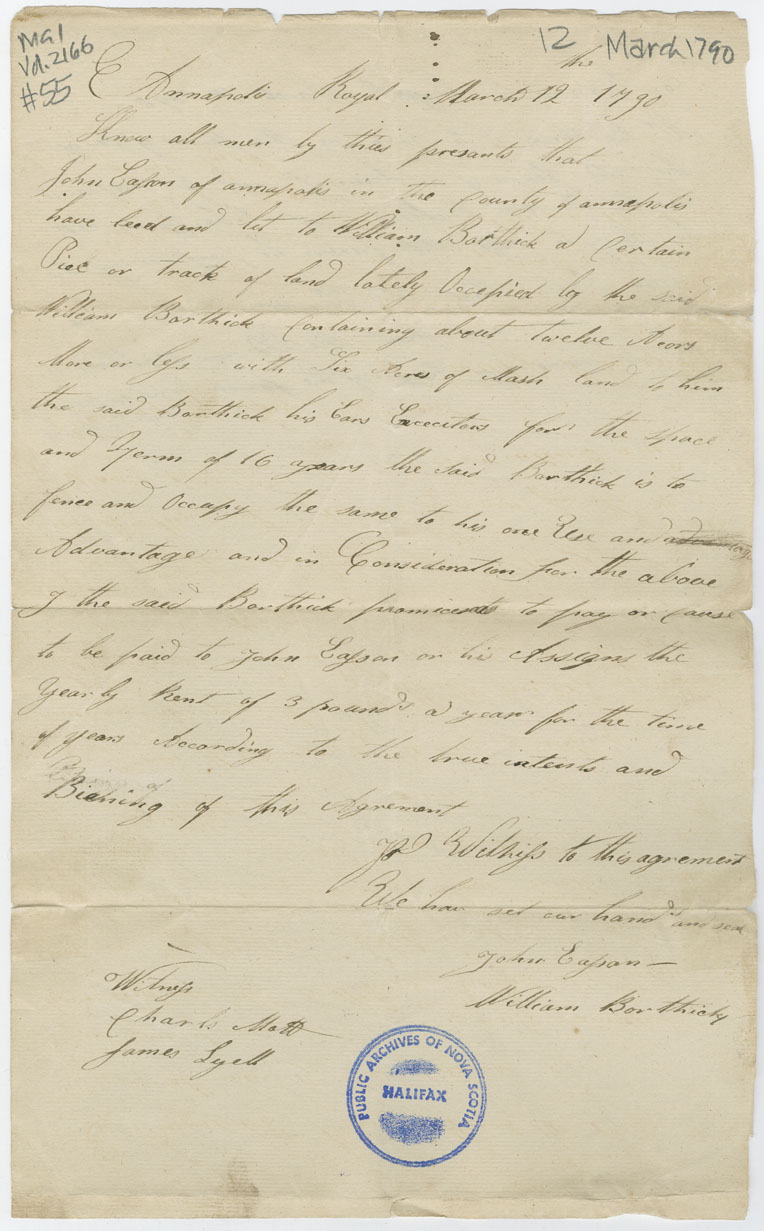 MG1
Vol. 2166
#55
12 March 1790
Annapolis Royal March 12 the 1790
Know all men by thies presants that
John Easson of annapolis in the County of annapolis
have leed and let to William Borthick a Certain
Piec or track of land lately Occepied by the said
William Borthick Containing about twelve Acors
More or less with Six Acres of Mash land to him
the said Borthick his Ears Excecitors for the space
and Term of 16 years the said Borthick is to
fence and Occupy the same to his one Use and
Advantage and in Consideration for the above
J the said Borthick promicends to pay or cause
to be paid to John Easson or his Assigns the
Yearly Rent of 3 pounds a year for the time
of years According to the true intents and
of this Agrement
Witniss to this agrement
We have set our hands and seal
John Easson
William Borthick
Witness
Charls Mott
James Lyell
PUBLIC ARCHIVES OF NOVA SCOTIA
HALIFAX